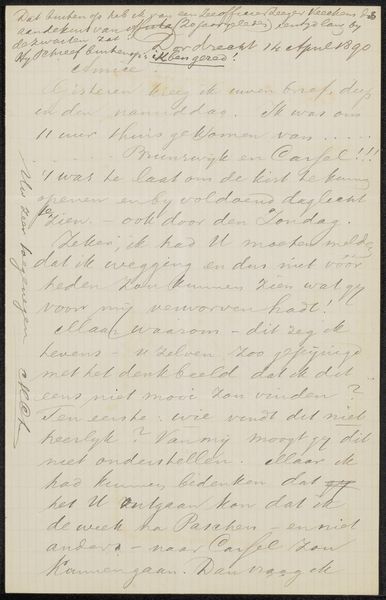 Dat buiten op heb ik van een zeeofficier
aan de kust van
de kwartier zat
Hy schreef buiten op: ik ben gered!
Dordrecht 14 April 1890
Amice.
Gisteren kreeg ik uwen brief, diep
in den namiddag. Ik was om
11 uur thuis gekomen van .....
Brunswijk en Cassel!!!
't was te laat om de kist te kunnen
openen en by voldoend daglicht
te zien. - ook door den Zondag.
Zeker; ik had U moeten melden
dat ik wegging en dus niet vóór
heden zou kunnen zien wat gy
voor my verworven hadt!
Maar waarom - dit zeg ik
tevens - u zelven zoo gepijnigd
met het denkbeeld dat ik dit
eens niet mooi zou vinden?
Ten eerste: wie vindt dit niet
heerlyk? Van my moogt gy dit
niet onderstellen. Maar ik
had kunnen bedenken dat
het U ontgaan kon dat ik
de week na Paschen - en niet
anders - naar Cassel zou
kunnen gaan. Dan vraag ik
Uw zeer toegenegen